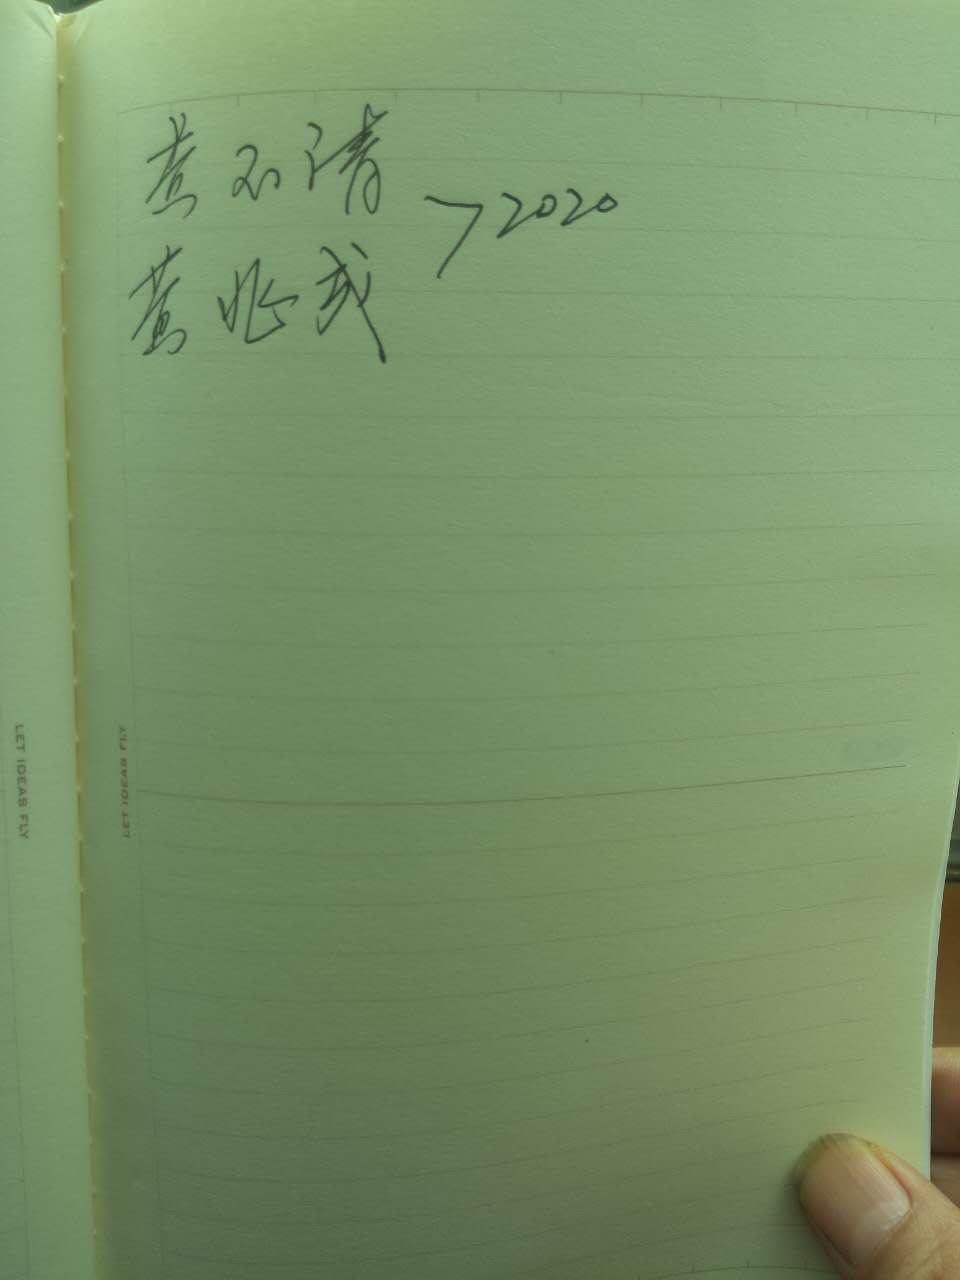 黄不清
黄兆武
>2020
LET IDEAS FLY
LET IDEAS FLY